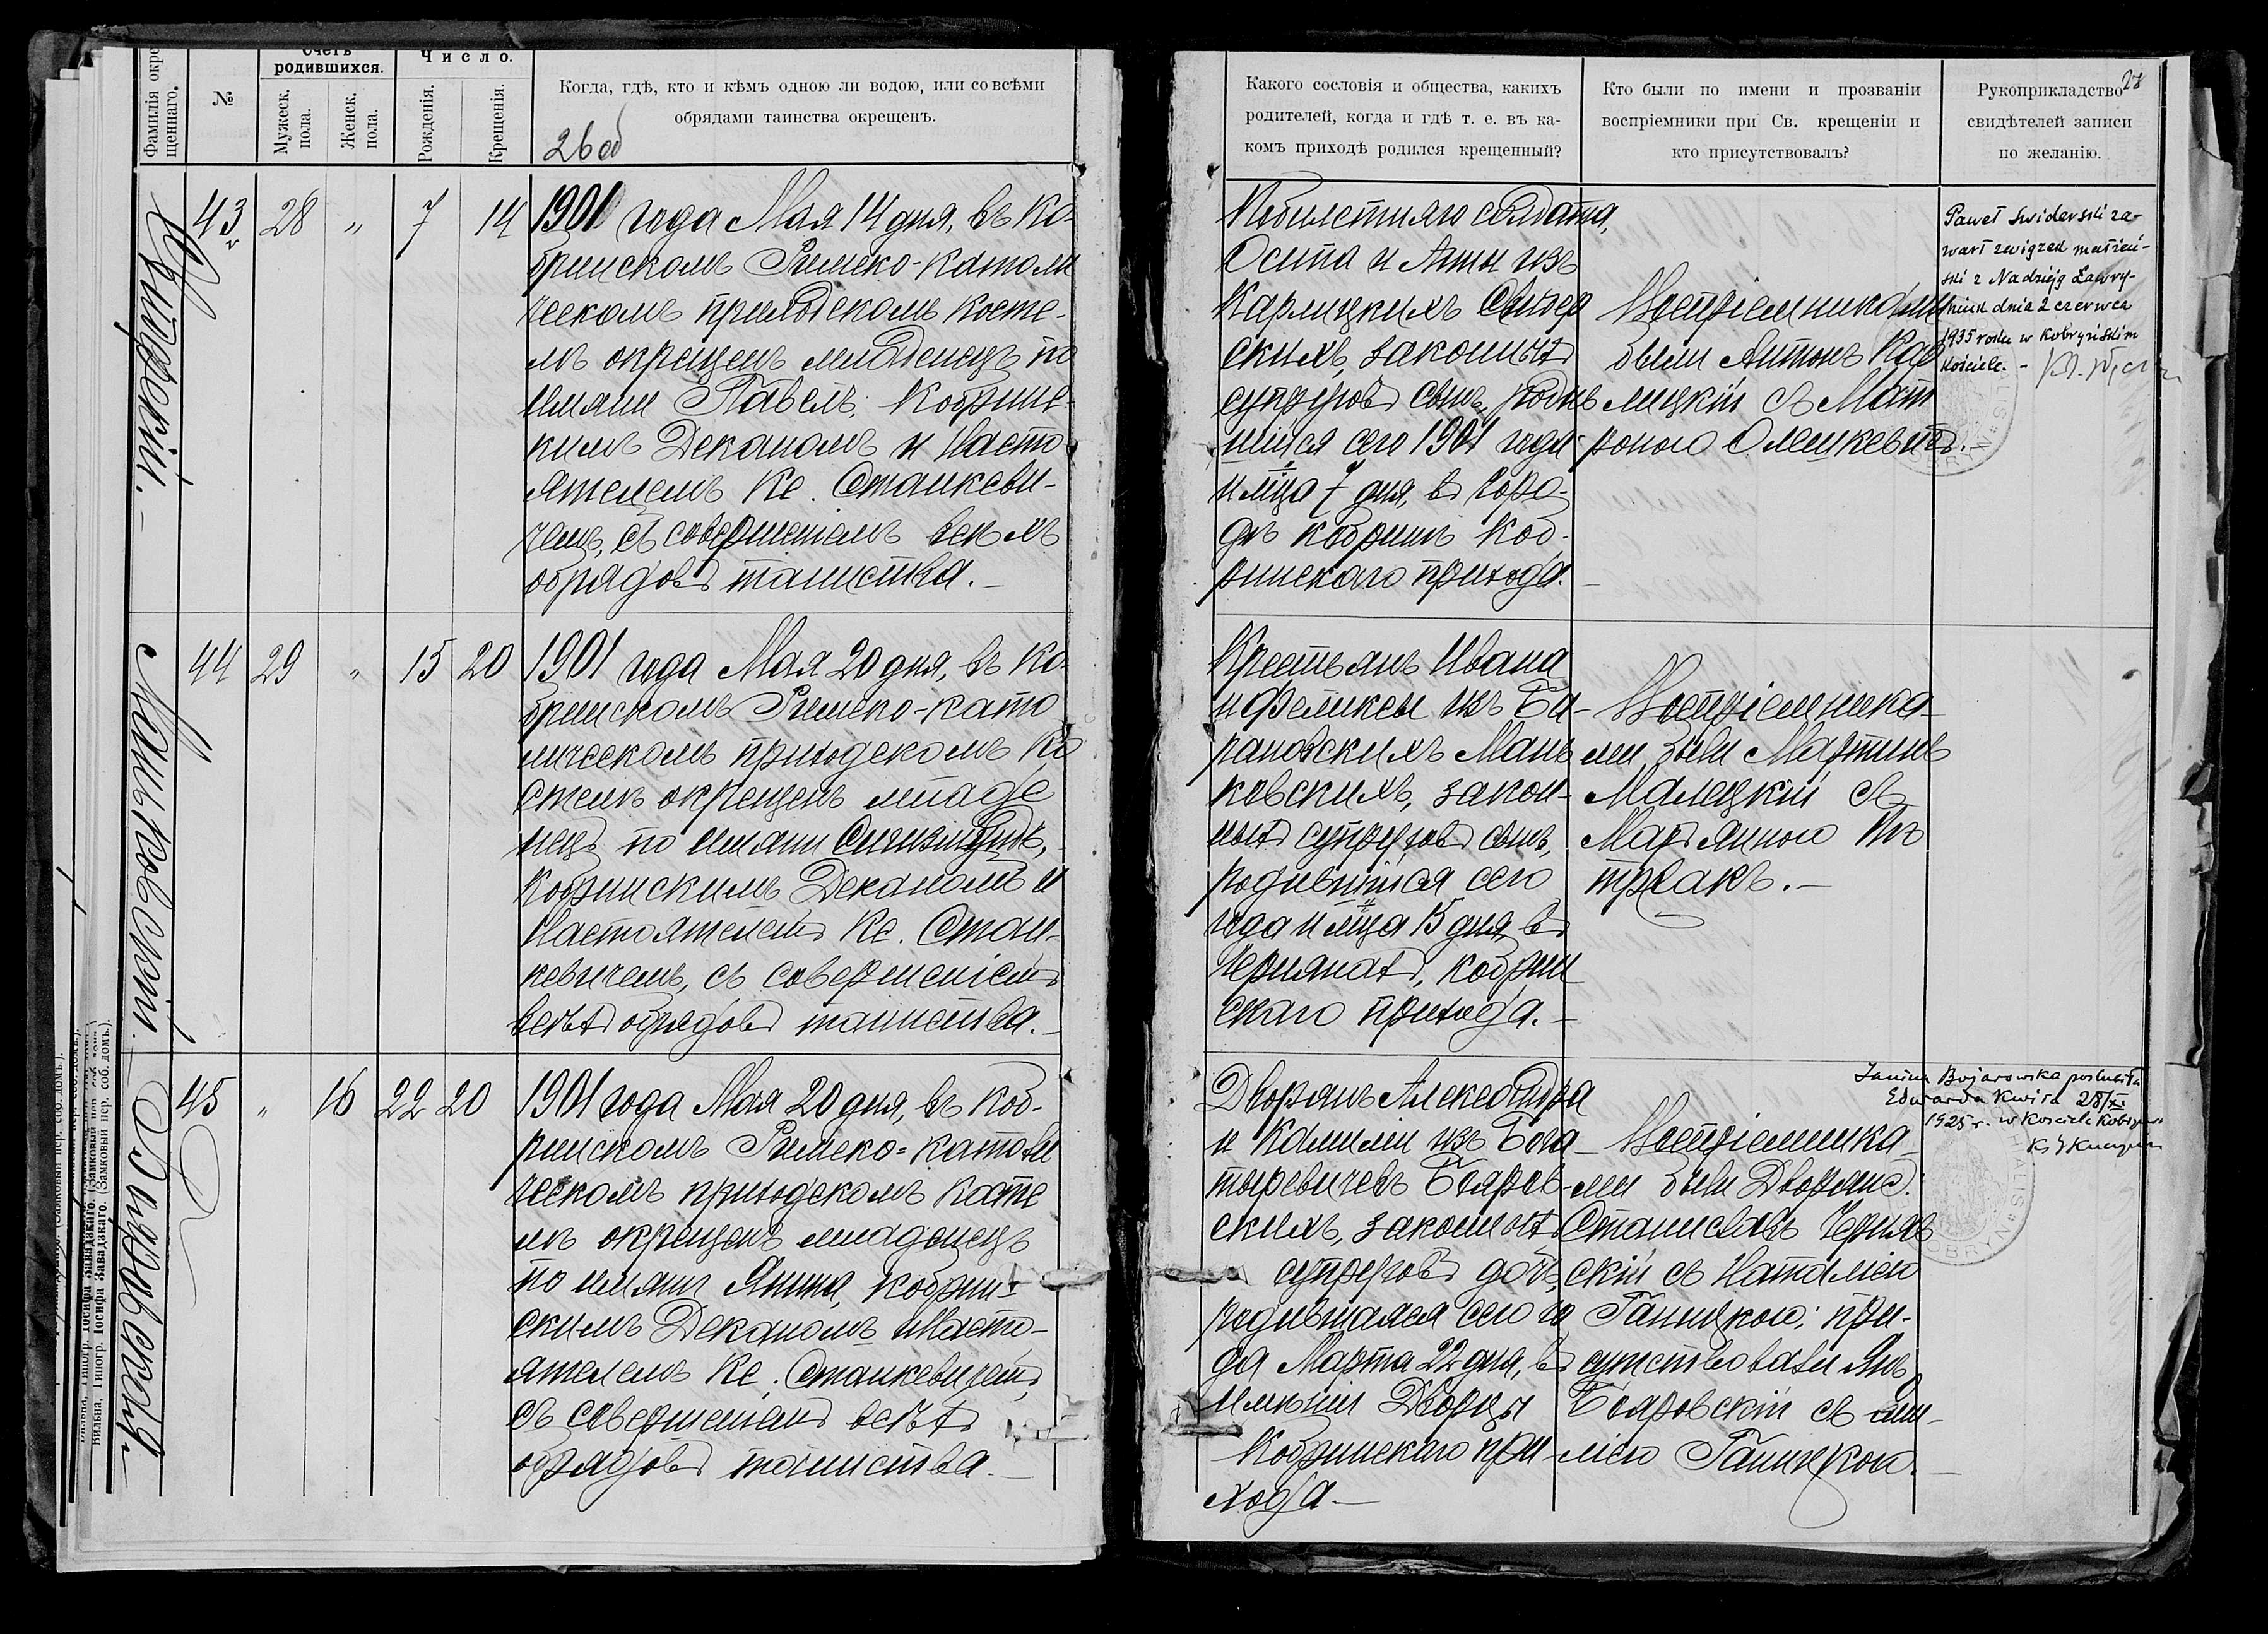 Фамилія окре
щеннаго.
№
Счетъ
родившихся.
Мужеск.
пола.
Женск.
пола.
Число.
Рожденія.
Крещенія.
Когда, гдѣ, кто и кѣмъ одною ли водою, или со всѣми
обрядами таинства окрещенъ.
26 об
43
28
„
7
14
1901 года Мая 14 дня, въ Ко-
бринскомъ Римско-католи
ческомъ приходскомъ косте-
лѣ окрещенъ младенецъ по
имяни Павелъ, Кобринс-
кимъ Деканомъ и Насто
ятелемъ Кс. Станкеви-
чемъ, съ совершеніемъ всѣхъ
обрядовъ таинства.–
44
29
„
15
20
Маньковскій.
1901 года Мая 20 дня, въ Ко-
бринскомъ Римско-като
лическомъ приходскомъ Ко
стелѣ окрещенъ младе
нецъ по имяни Сигизмундъ,
Кобринскимъ Деканомъ и
Настоятелемъ Кс. Стан-
кевичемъ, съ совершеніемъ
всѣхъ обрядовъ таинства.–
45
„
16
22
20
Бояровская
1901 года Мая 20 дня, въ Коб-
ринскомъ Римско=католи
ческомъ приходскомъ косте
лѣ окрещенъ младенецъ
по имяни Янина, Кобрин-
скимъ Деканомъ и Насто-
ятелемъ Кс. Станкевичемъ,
съ совершеніемъ всѣхъ
обрядовъ таинства.–
Вильна, Типогр. Іосифа Завадзкаго. (Замковый пер. соб. домъ.).
Какого сословія и общества, какихъ
родителей, когда и гдѣ т. е. въ ка-
комъ приходѣ родился крещенный?
Кто были по имени и прозваніи
воспріемники при Св. крещеніи и
кто присутствовалъ?
Рукоприкладство
свидѣтелей записи
по желанію.
солдата,
Осипа и Анны изъ
Карлицкихъ Свидер
скихъ, законныхъ
супруговъ сынъ, родив
шійся сего 1901 года
и мѣсяца 7 дня, въ горо-
дѣ Кобринѣ Коб-
ринскаго прихода.–
Воспріемниками
были Антонъ Кар
лицкій съ Мат
роною Олешкевичъ.
Paweł Swiderski za-
warł związek małżeń-
ski z Nadzieją Ławry-
niuk dnia 2 czerwca
1935 roku w Kobryńskim
kościele. –
Крестьянъ Ивана
и Феликсы изъ Ба-
рановскихъ Мань
ковскихъ, закон-
ныхъ супруговъ сынъ,
родившійся сего
года и мѣсяца 15 дня, въ
кобрин
скаго прихода.–
Воспріемника-
ми были Мартинъ
Малецкій съ
Марьянною Пѣ
тракъ.–
Дворянъ Александра
и Камиліи изъ Бога-
тыревичевъ Бояров-
скихъ, законныхъ
супруговъ дочь,
родившаяся сего го
да Марта 22 дня, въ
имѣніи Дворцы
Кобринскаго при-
хода.–
Воспріемника-
ми были Дворяне:
Станиславъ Черняв
скій съ Наталіею
Ганицкою; при-
сутствовали Янъ
Бояровскій съ Эми-
ліею Ганицкою.–
Janina Bojarowska poslubiła
Edwarda Kwira 28/XI.
1925 r. w kosciele Kobryns